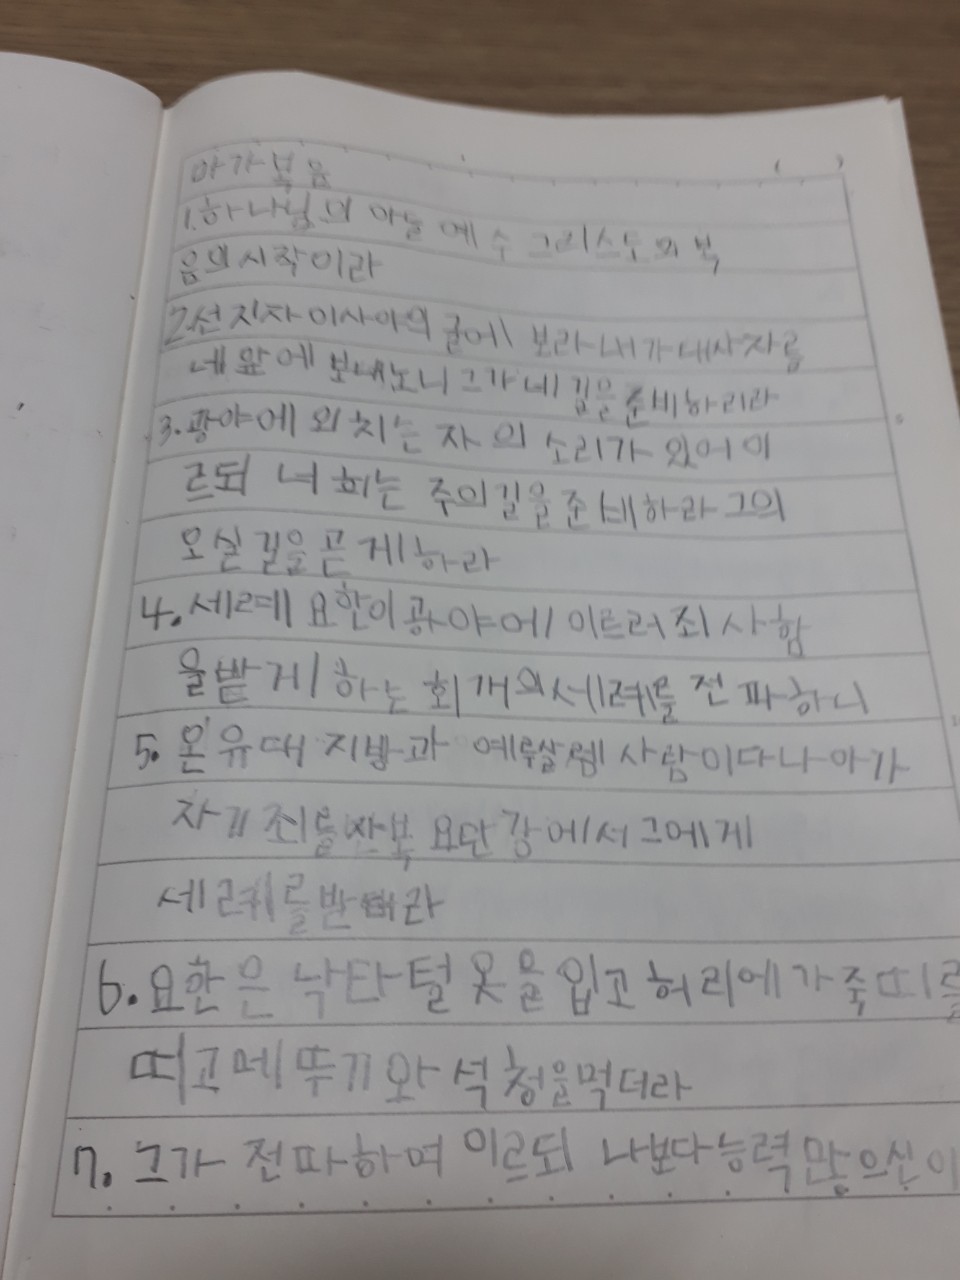 마가복음
1.하나님의 아늘 예수 그리스도의 복
음의시작이라
2선지자 이사야의 글에 보라 내가 내사자를
네 앞에 보내노니 그가 네 길을 준비하리라
3.광야에 외치는 자의 소리가 있어 이
르되 너희는 주의길을 준비하라 그의
오실 길을 곧게 하라
4.세례 요한이 광야에 이르러 죄 사함
을 받게 하는 회개의 세례를 전파하니
5.온 유대 지방과 예루살렘 사람이 다 나아가
자기 죄를 자복 요단강에서 그에게
세례를 받더라
6.요한은 낙타털 옷을 입고 허리에 가죽 띠를
띠고 메뚜기와 석청을 먹더라
7.그가 전파하여 이르되 나보다 능력 많으신 이